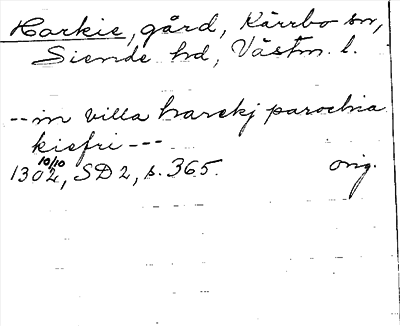 Harkie, gård, Kärrbo sn,
Siende hd, Västm. l.
-- in villa harckj parochia
kiefri ---
10/10
1302, SD 2, s. 365. orig.